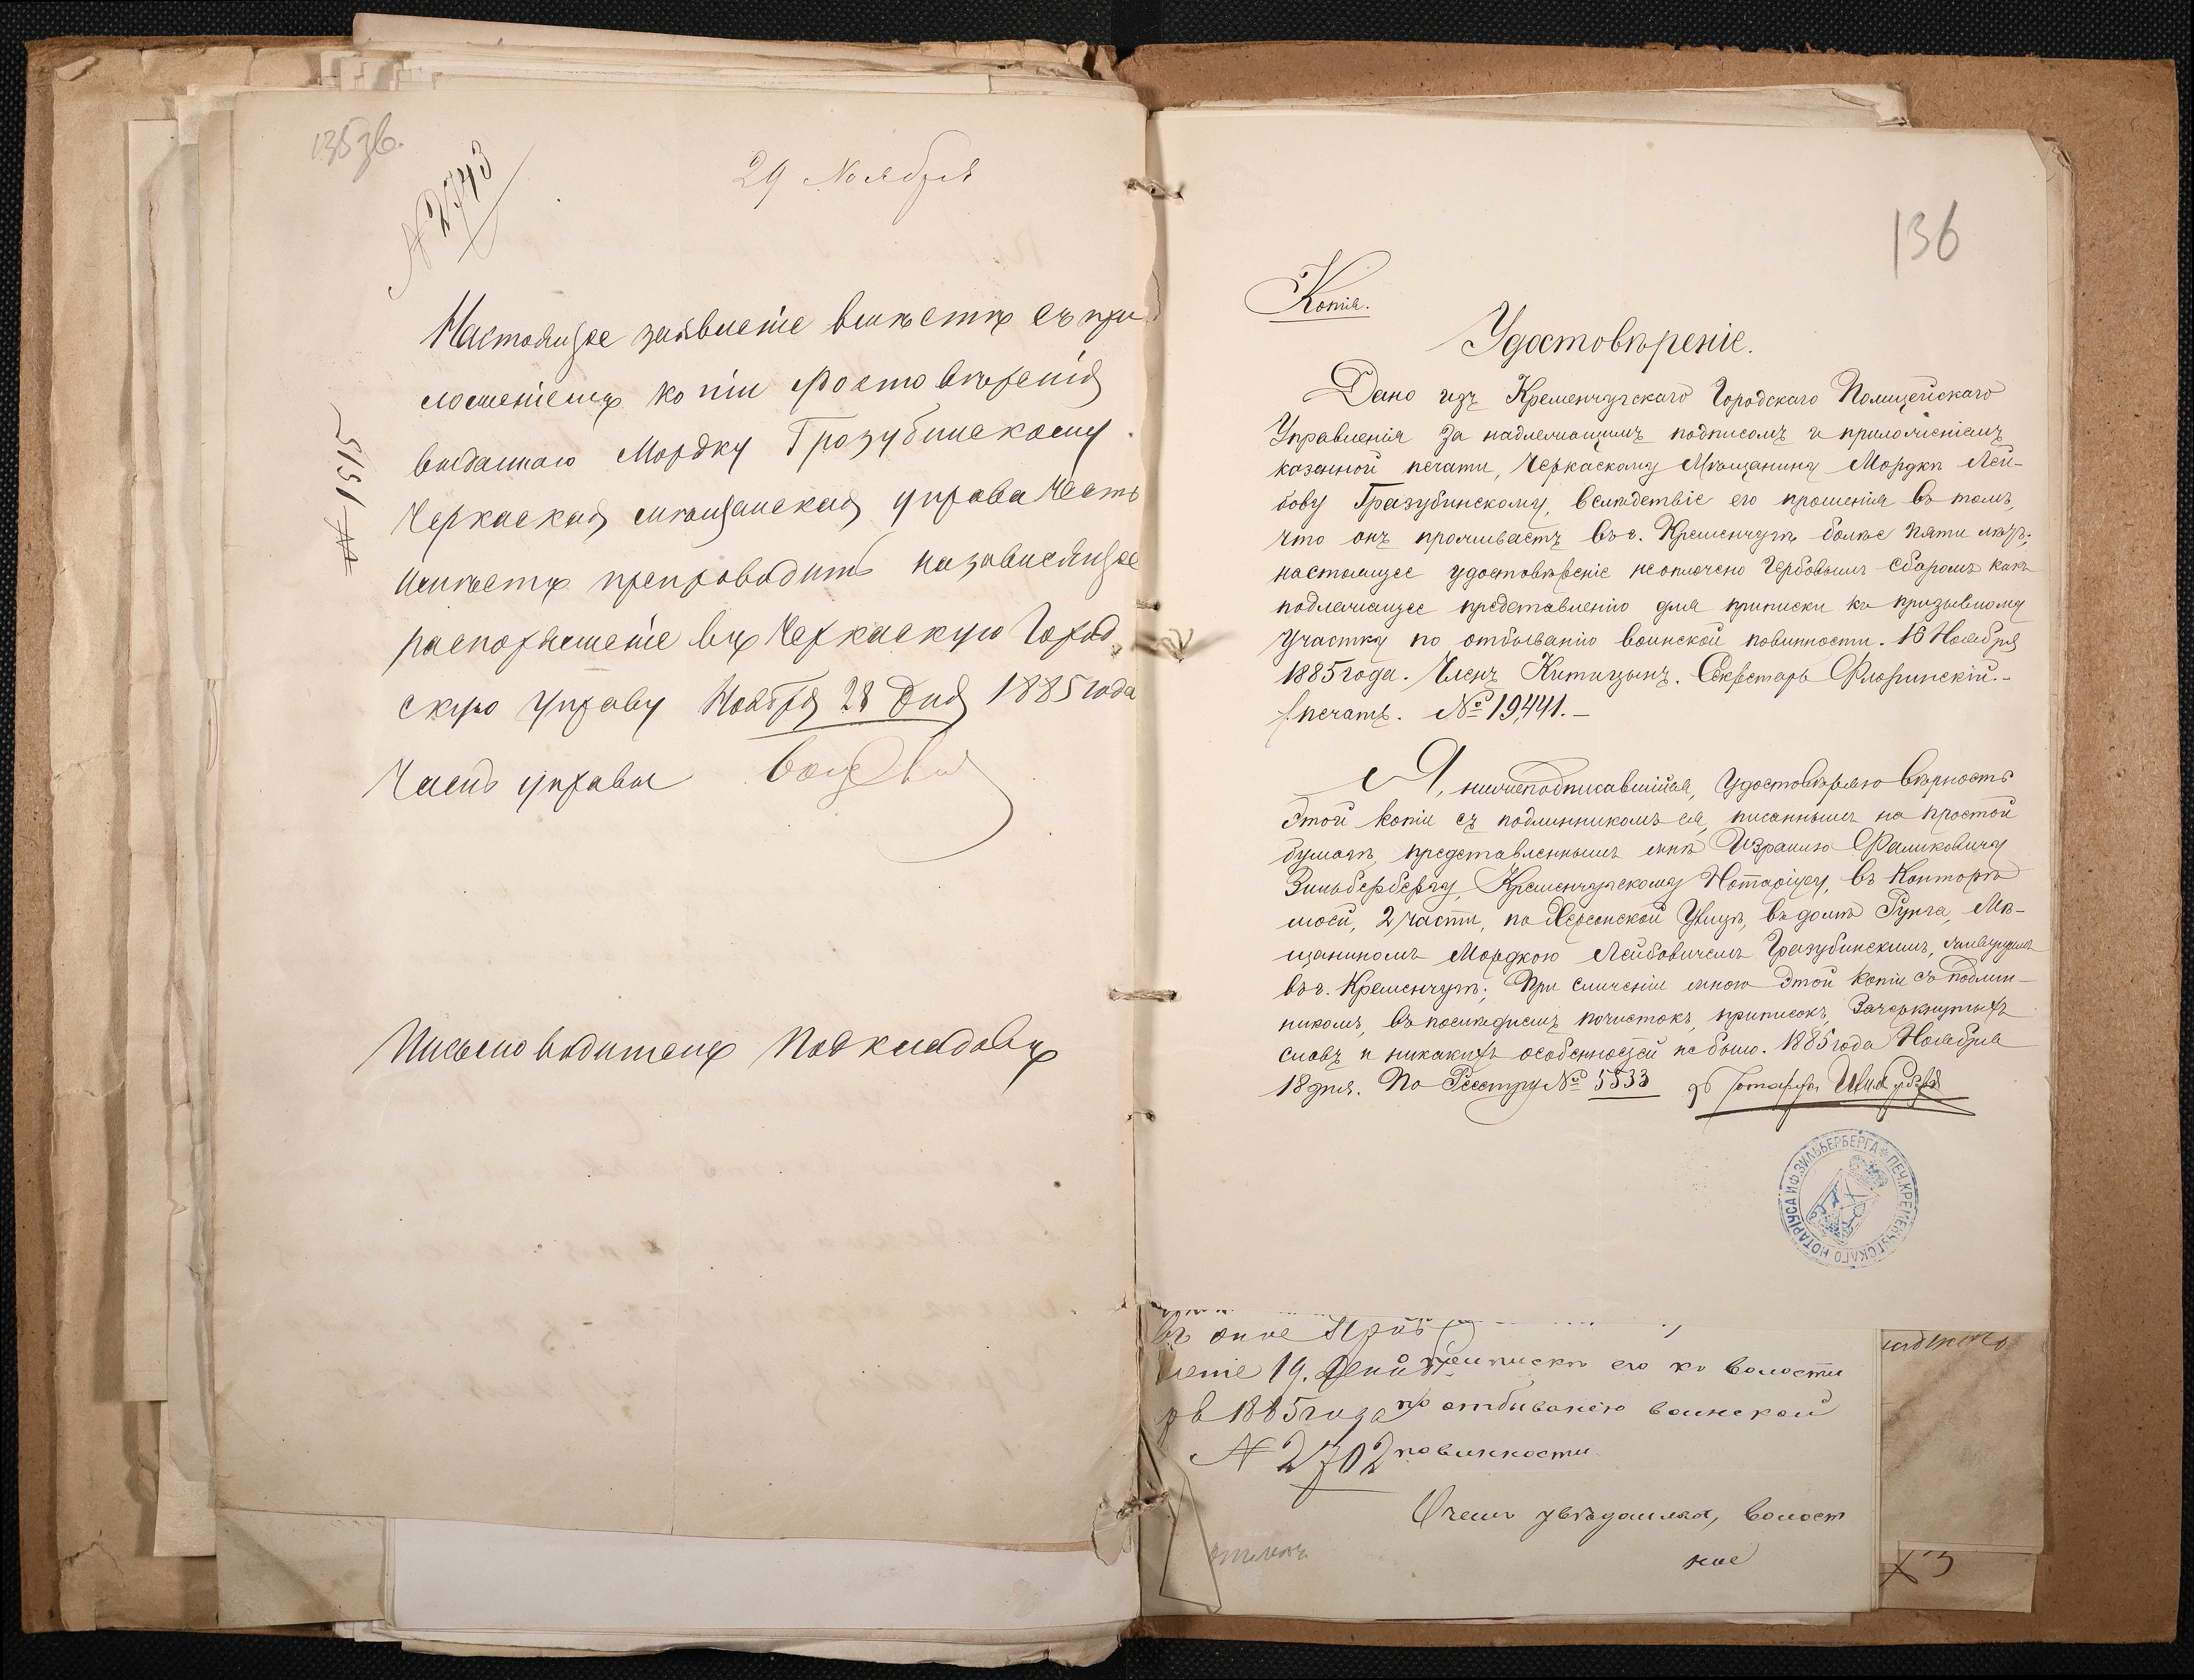 135зв.
№ 2743
29 Ноября
Настоящее заявленіе вмѣстѣ съ при
ложеніемъ копіи удостовѣренія
выданнаго Мордку Грозубинскому
Черкаская мѣщанская управа честь
имѣетъ препроводить на зависящее
распоряженіе въ Черкаскую Город
скую Управу Ноября 28 дня 1885 года
Членъ управы
№ 1515
Письмоводитель Поскладовъ
136
Копія.
Удостовѣреніе.
Дано изъ Кременчугскаго Городскаго Полицейскаго
Управленія за надлежащимъ подписомъ и приложеніемъ
казенной печати, Черкаскому Мѣщанину Мордкѣ Лей-
бову Гразубинскому, вслѣдствіе его прошенія въ томъ,
что онъ проживаетъ въ г. Кременчугѣ болѣе пяти лѣтъ;
настоящее удостовѣреніе неоплочено Гербовымъ сборомъ какъ
подлежащее представленію для приписки къ призывному
участку по отбыванію воинской повинности. 16 Ноября
1885 года. Членъ Китицынъ. Секретарь Флоринскій.-
/печать. № 19,441.-
Я, нижеподписавшійся, удостовѣряю вѣрность
этой копіи съ подлинникомъ ея, писаннымъ на простой
бумагѣ, представленнымъ мнѣ Израилю Фаликовичу
Зильбербергу, Кременчугскому Нотаріусу, въ Конторѣ
моей, 2 части, по Херсонской Улицѣ, въ домѣ Гунга, Мѣ-
щаниномъ Мордкою Лейбовичемъ Гразубинскимъ, живущимъ
въ г. Кременчугѣ; При сличеніи мною этой копіи съ подлин-
никомъ, въ послѣднемъ почистокъ, приписокъ, зачеркнутыхъ
словъ и никакихъ особенностей не было. 1885 года Ноября
18 дня. По Реестру № 5533
ПЕЧ. КРЕМЕНЧУГСКАГО НОТАРІУСА И.Ф. ЗИЛЬБЕРБЕРГА
въ оное
19. приписки его къ волости
1885 года по отбыванію воинской
№ 2702 повинности
О чемъ увѣдомляя, волост
ное